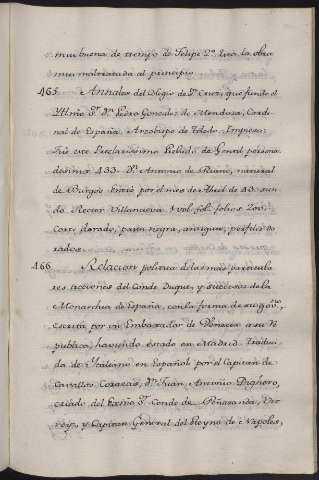 mui buena de tiempo de Felipe 2º. Esta la obra
mui maltratada al principio
465 Annales del Colegio de Sta Cruz, que fundo el
Yllmo Sr. Dn. Pedro Gonzalez de Mendoza, Carde-
nal de España, Arzobispo de Toledo.
Fue este Preclarissimo Prelado, de Gentil persona
433 Dn. Antonio de natural
de Burgos Entró por el mes de Abril de 40. sien-
do Rector Villanueva 1 vol. folº. folios
Corte dorado, pasta negra, antigua, perfiles do-
rados.
466 Relacion politica de las mas particula-
res acciones del Conde Duque, y successos de la
Monarchia de España, con la forma de su govno,
escrita por un Embaxador de Venecia a su Re
publica, haviendo estado en Madrid. traduci-
da de Ytaliano en Español por el Capitan de
Cavallos Corazas, Dn. Juan Antonio
criado del Exmo Sr. Conde de Peñaranda, Vir-
rey, y Capitan General del Reyno de Napoles,